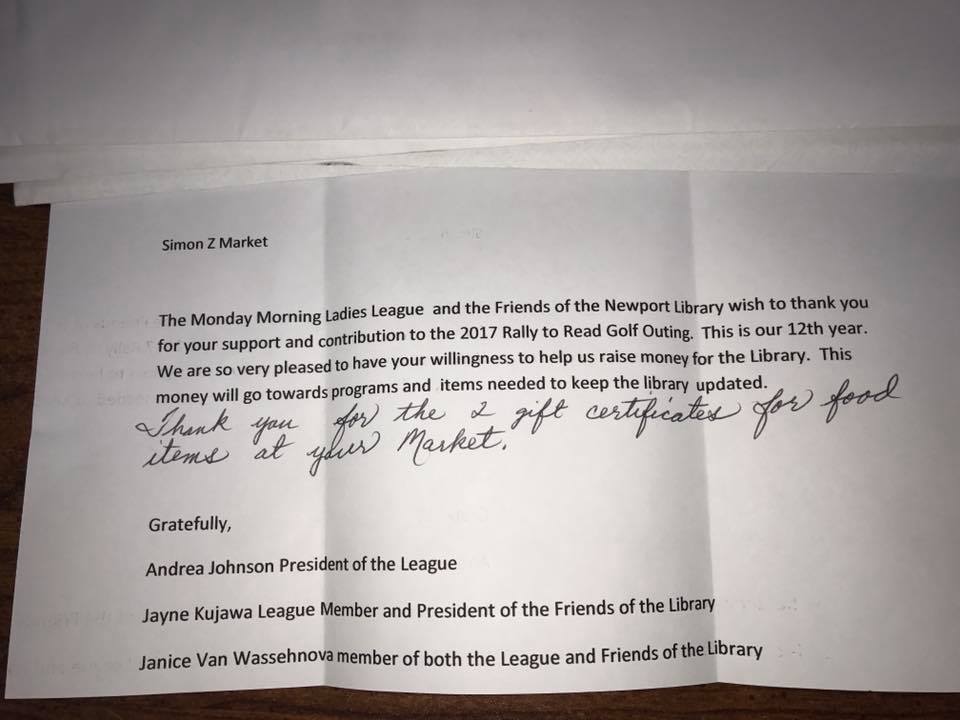 Simon Z Market
The Monday Morning Ladies League and the Friends of the Newport Library wish to thank you
for your support and contribution to the 2017 Rally to Read Golf Outing. This is our 12th year.
We are so very pleased to have your willingness to help us raise money for the Library. This
money will go towards programs and items needed to keep the library updated.
Thank you for the 2 gift certificates for food
items at your Market.
Gratefully,
Andrea Johnson President of the League
Jayne Kujawa League Member and President of the Friends of the Library
Janice Van Wassehnova member of both the League and Friends of the Library